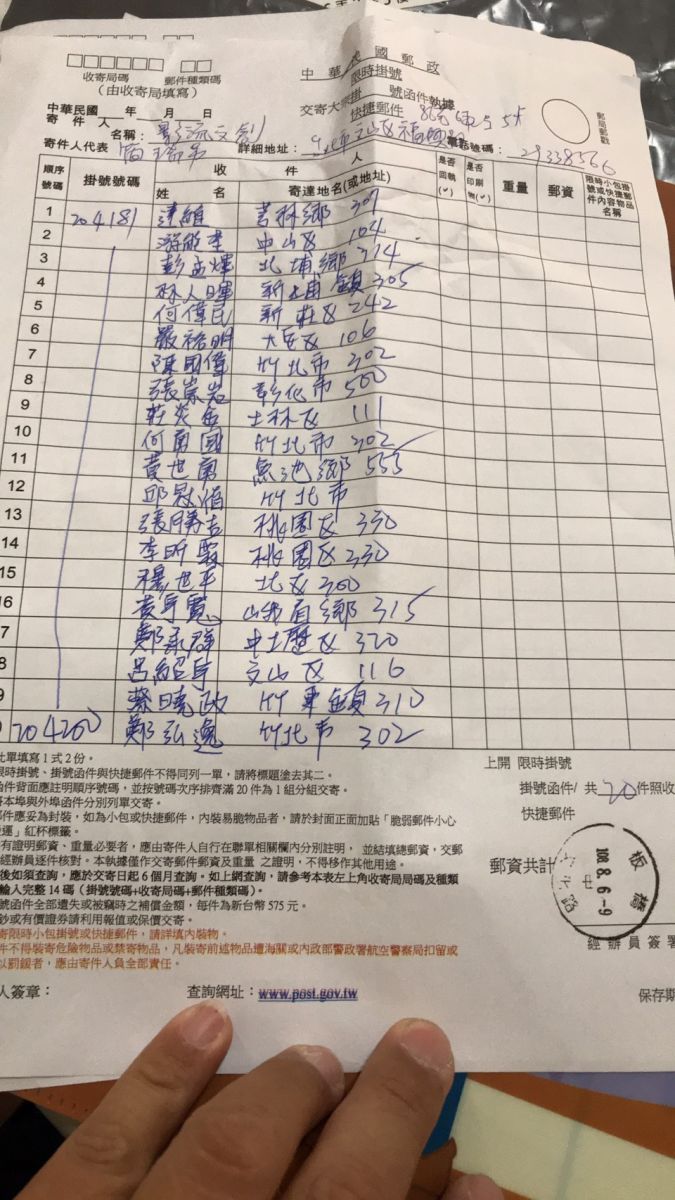 收寄局碼 郵件種類碼
(由收寄局填寫)
中華民國郵政
限時掛號
交寄大宗掛號函件執據
快捷郵件
中華民國 年 月 日
寄件人
名稱:
郵局郵戳
寄件人代表
詳細地址:
電話號碼: 29338566
順序號碼 掛號號碼 收件人 是否回執(✓) 是否印刷物(✓) 重量 郵資 限時小包掛號或快捷郵件內容物品名稱
姓名 寄達地名(或地址)
1 204181 芎林鄉 307
2 中山區 104
3 彭孟煇 北埔鄉 314
4 林人暉 新埔鎮 305
5 何偉民 新莊區 242
6 嚴裕明 大安區 106
7 陳國偉 竹北市 302
8 張崇岩 彰化市 500
9 莊炎金 士林區 111
10 何南國 竹北市 302
11 黃世南 魚池鄉 555
12 竹北市
13 張勝吉 桃園區 330
14 李昕霖 桃園區 330
15 穆世平 北區 300
16 峨眉鄉 315
7 鄭永群 中壢區 320
8 呂紹宇 文山區 116
9 蔡曉政 竹東鎮 310
204200 鄭弘逸 竹北市 302
此單填寫 1 式 2 份。
限時掛號、掛號函件與快捷郵件不得同列一單,請將標題塗去其二。
函件背面應註明順序號碼,並按號碼次序排齊滿 20 件為 1 組分組交寄。
本埠與外埠函件分別列單交寄。
郵件應妥為封裝,如為小包或快捷郵件,內裝易脆物品者,請於封面正面加貼「脆弱郵件小心
運」紅杯標籤。
有證明郵資、重量必要者,應由寄件人自行在聯單相關欄內分別註明,並結填總郵資,交郵
經辦員逐件核對。本執據僅作交寄郵件郵資及重量之證明,不得移作其他用途。
後如須查詢,應於交寄日起 6 個月查詢。如上網查詢,請參考本表左上角收寄局局碼及種類
輸入完整 14 碼(掛號號碼+收寄局碼+郵件種類碼)。
號函件全部遺失或被竊時之補償金額,每件為新台幣 575 元。
鈔或有價證券請利用報值或保價交寄。
寄限時小包掛號或快捷郵件,請詳填內裝物。
件不得裝寄危險物品或禁寄物品,凡裝寄前述物品遭海關或內政部警政署航空警察局扣留或
以罰鍰者,應由寄件人負全部責任。
上開 限時掛號
掛號函件/ 共 20 件照收
快捷郵件
郵資共計
板橋
108.8.6-9
中
經辦員簽署
人簽章:
查詢網址:www.post.gov.tw
保存期